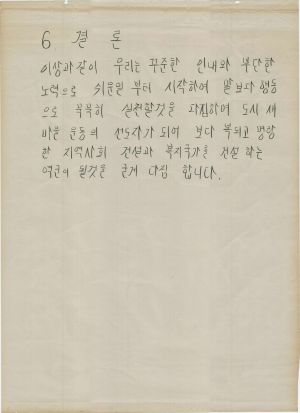 6 결 론
이상과같이 우리는 꾸준한 인내와 부단한
노력으로 쉬운일 부터 시작하여 말보다 행동
으로 묵묵히 실천할것을 다짐하며 도시 새
마을 운동의 선도자가 되여 보다 복되고 명랑
한 지역사회 건설과 복지국가를 건설 하는
역군이 될것을 굳게 다짐 합니다.